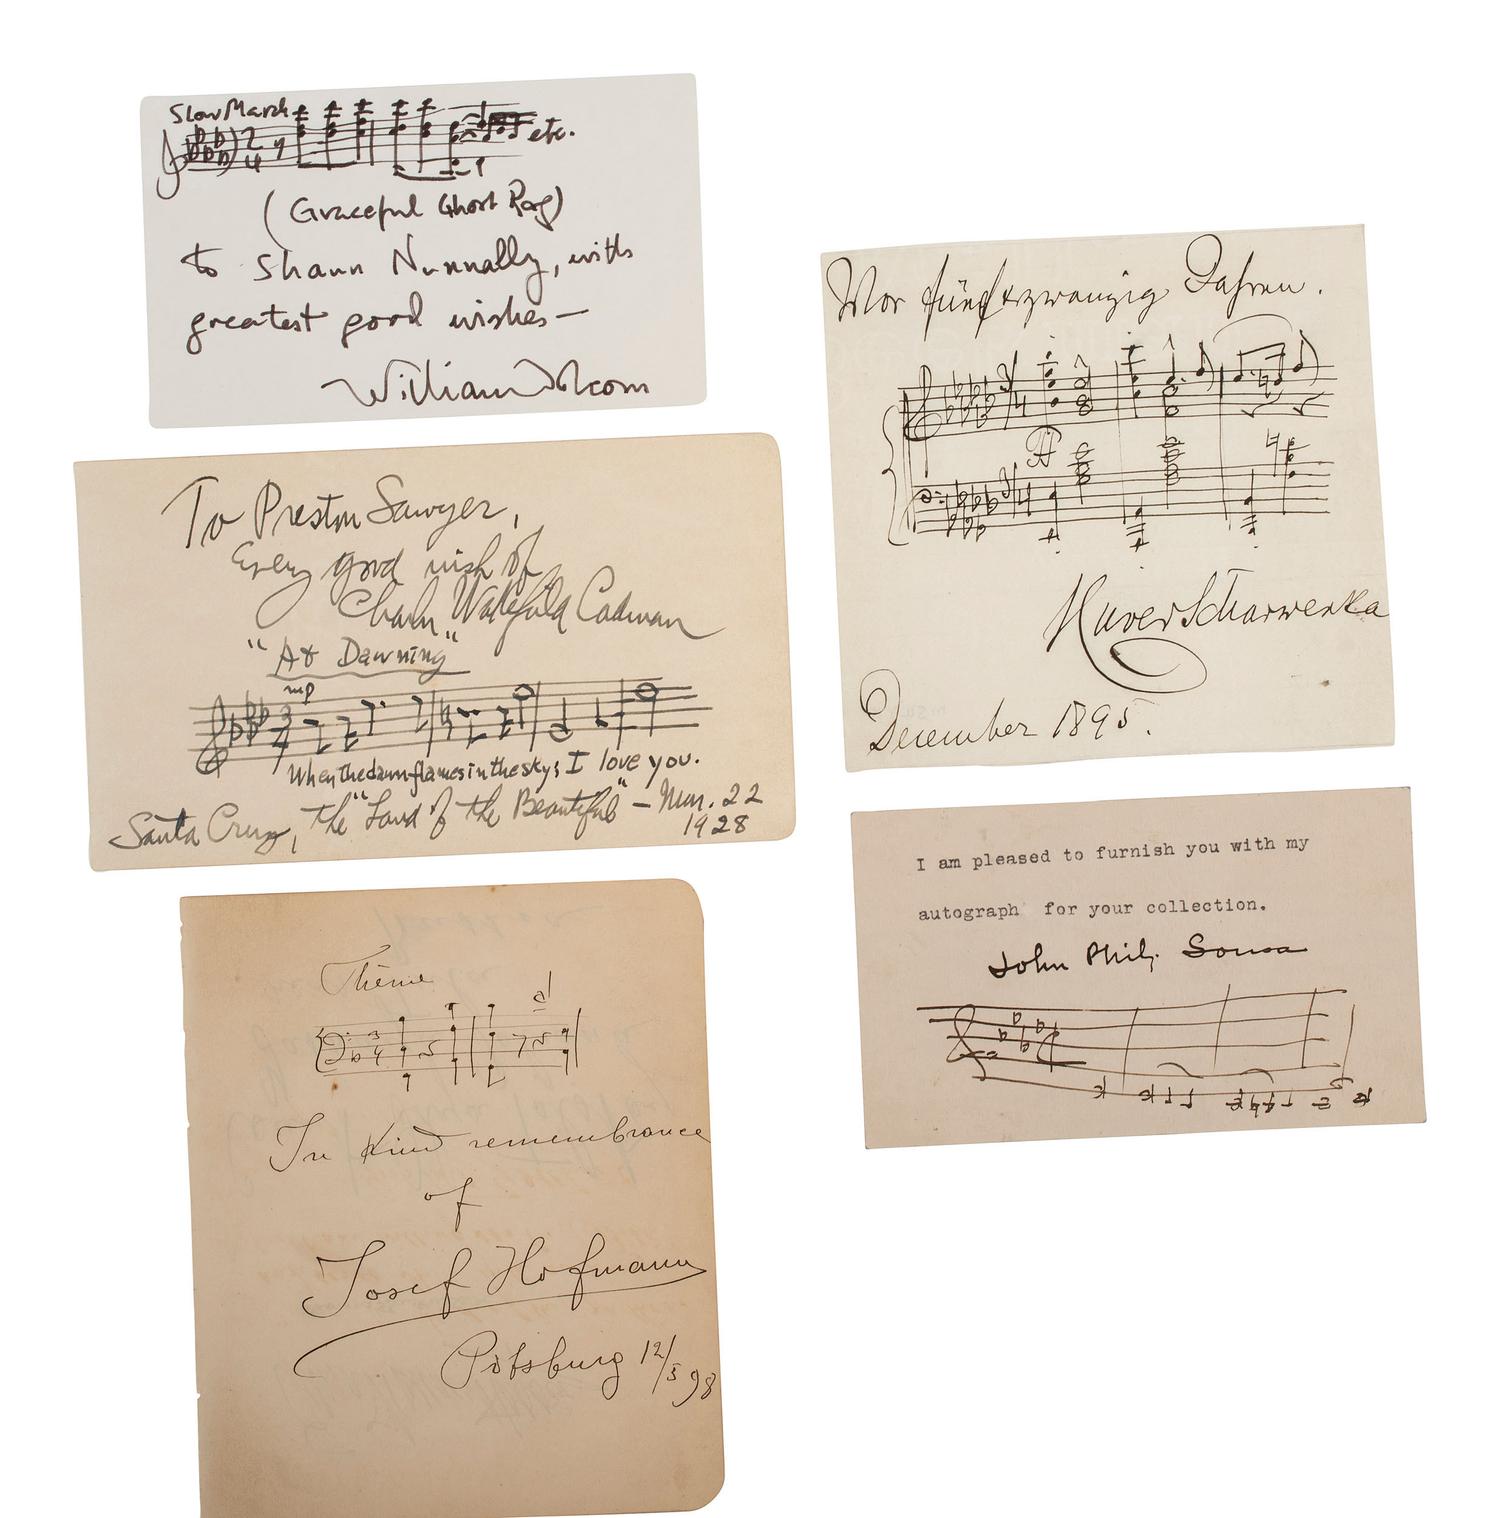 Slow March
etc.
(Graceful Ghost Rag)
to Shawn Nunnally, with
greatest good wishes—
William Bolcom
To Preston Sawyer,
Every good wish of
Charles Wakefield Cadman
"At Dawning"
mp
When the dawn flames in the sky; I love you.
Santa Cruz, the "Land of the Beautiful" — Mar. 22
1928
Thème
In kind remembrance
of
Josef Hofmann
Pitsburg 12/5 98
Vor fünfundzwanzig Jahren.
Xaver Scharwenka
December 1895.
I am pleased to furnish you with my
autograph for your collection.
John Philip Sousa